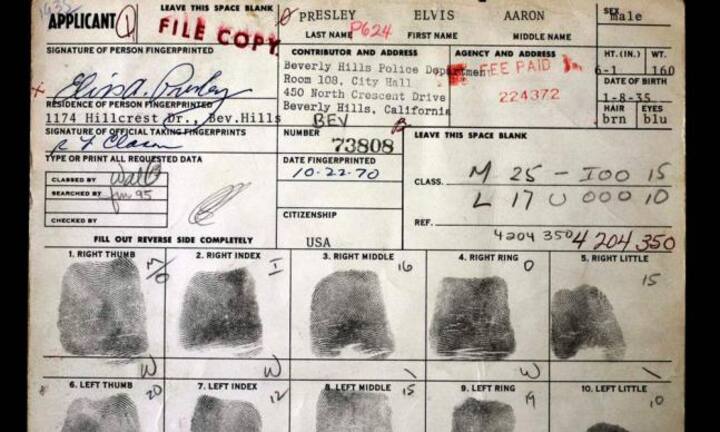 1632
APPLICANT 1
LEAVE THIS SPACE BLANK
FILE COPY
PRESLEY ELVIS AARON
P624
LAST NAME FIRST NAME MIDDLE NAME
SEX
male
SIGNATURE OF PERSON FINGERPRINTED
Elvis A. Presley
RESIDENCE OF PERSON FINGERPRINTED
1174 Hillcrest Dr., Bev.Hills
SIGNATURE OF OFFICIAL TAKING FINGERPRINTS
TYPE OR PRINT ALL REQUESTED DATA
CLASSED BY
SEARCHED BY
CHECKED BY
CONTRIBUTOR AND ADDRESS
Beverly Hills Police Departmen
Room 108, City Hall
450 North Crescent Drive
Beverly Hills, California
BEV
NUMBER
73808
DATE FINGERPRINTED
10-22-70
CITIZENSHIP
USA
AGENCY AND ADDRESS
FEE PAID
224372
HT. (IN.) WT.
6-1 160
DATE OF BIRTH
1-8-35
HAIR EYES
brn blu
LEAVE THIS SPACE BLANK
CLASS. M 25 - IOO 15
L 17 U 000 10
REF.
4204 350 4204350
FILL OUT REVERSE SIDE COMPLETELY
1. RIGHT THUMB
2. RIGHT INDEX I
3. RIGHT MIDDLE 16
4. RIGHT RING O
5. RIGHT LITTLE 15
W W \ W \
6. LEFT THUMB 20
7. LEFT INDEX 12
8. LEFT MIDDLE 15
9. LEFT RING 19
10. LEFT LITTLE 10